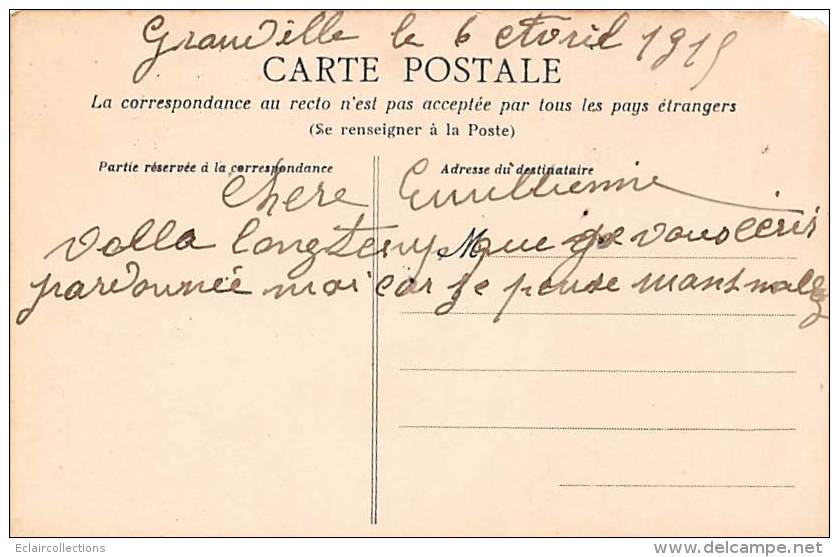 Granville le 6 Avril 1915
CARTE POSTALE
La correspondance au recto n'est pas acceptée par tous les pays étrangers
(Se renseigner à la Poste)
Partie réservée à la correspondance
Adresse du destinataire
Chere
voila longtemp que je vous ecris
pardonnée moi car je pense
Eclaircollections
delcampe.net